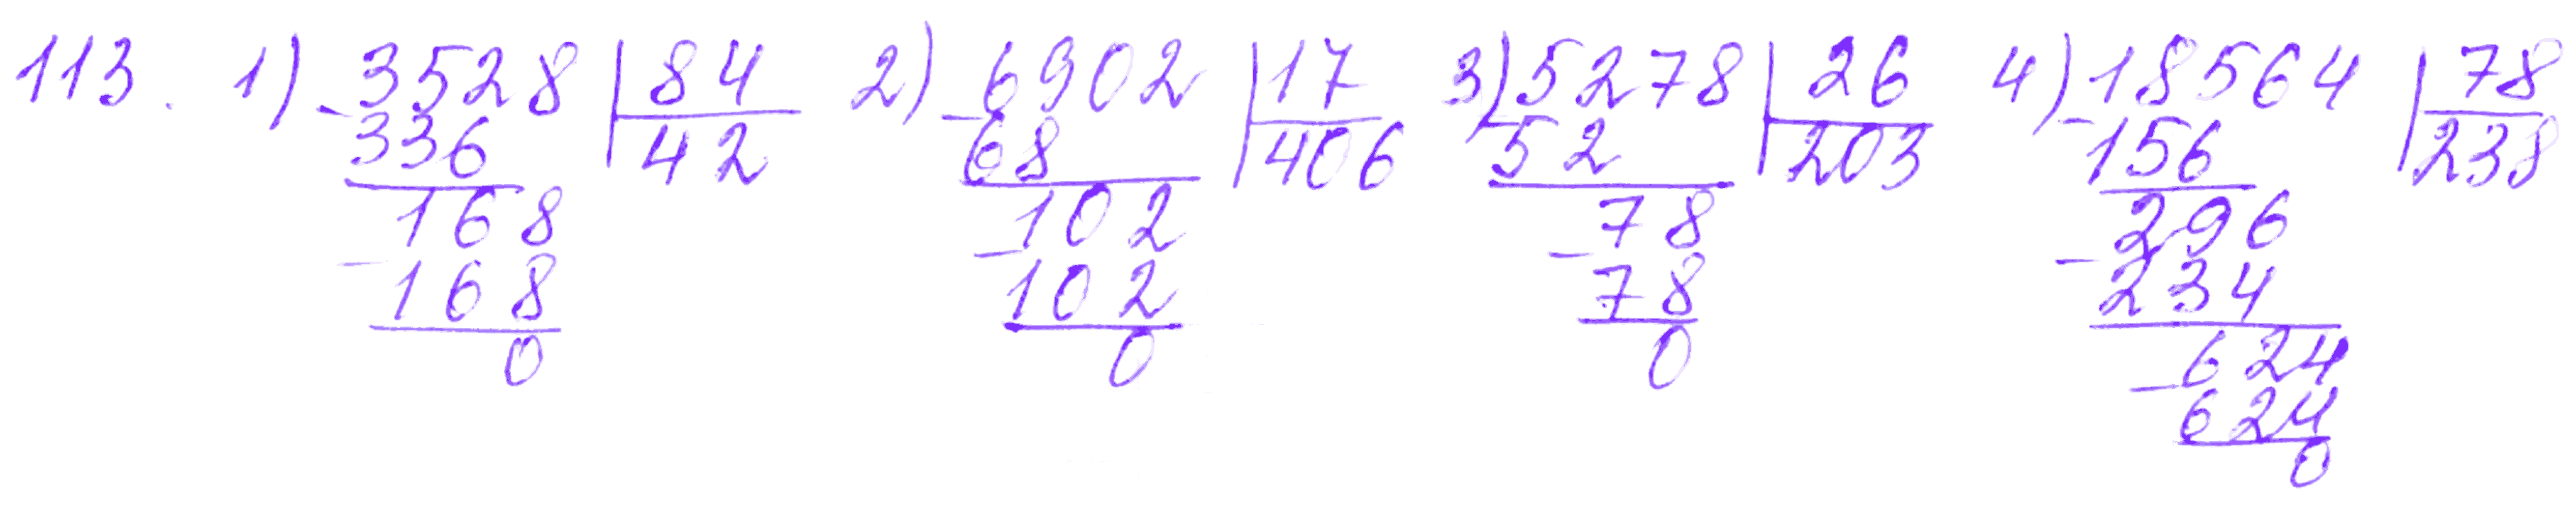 113. 1) 3528 | 84 2) 6902 | 17 3) 5278 | 26 4) 18564 | 78
- 336 42 - 68 406 - 52 203 - 156 238
168 102 78 296
- 168 - 102 - 78 - 234
0 0 0 624
- 624
0